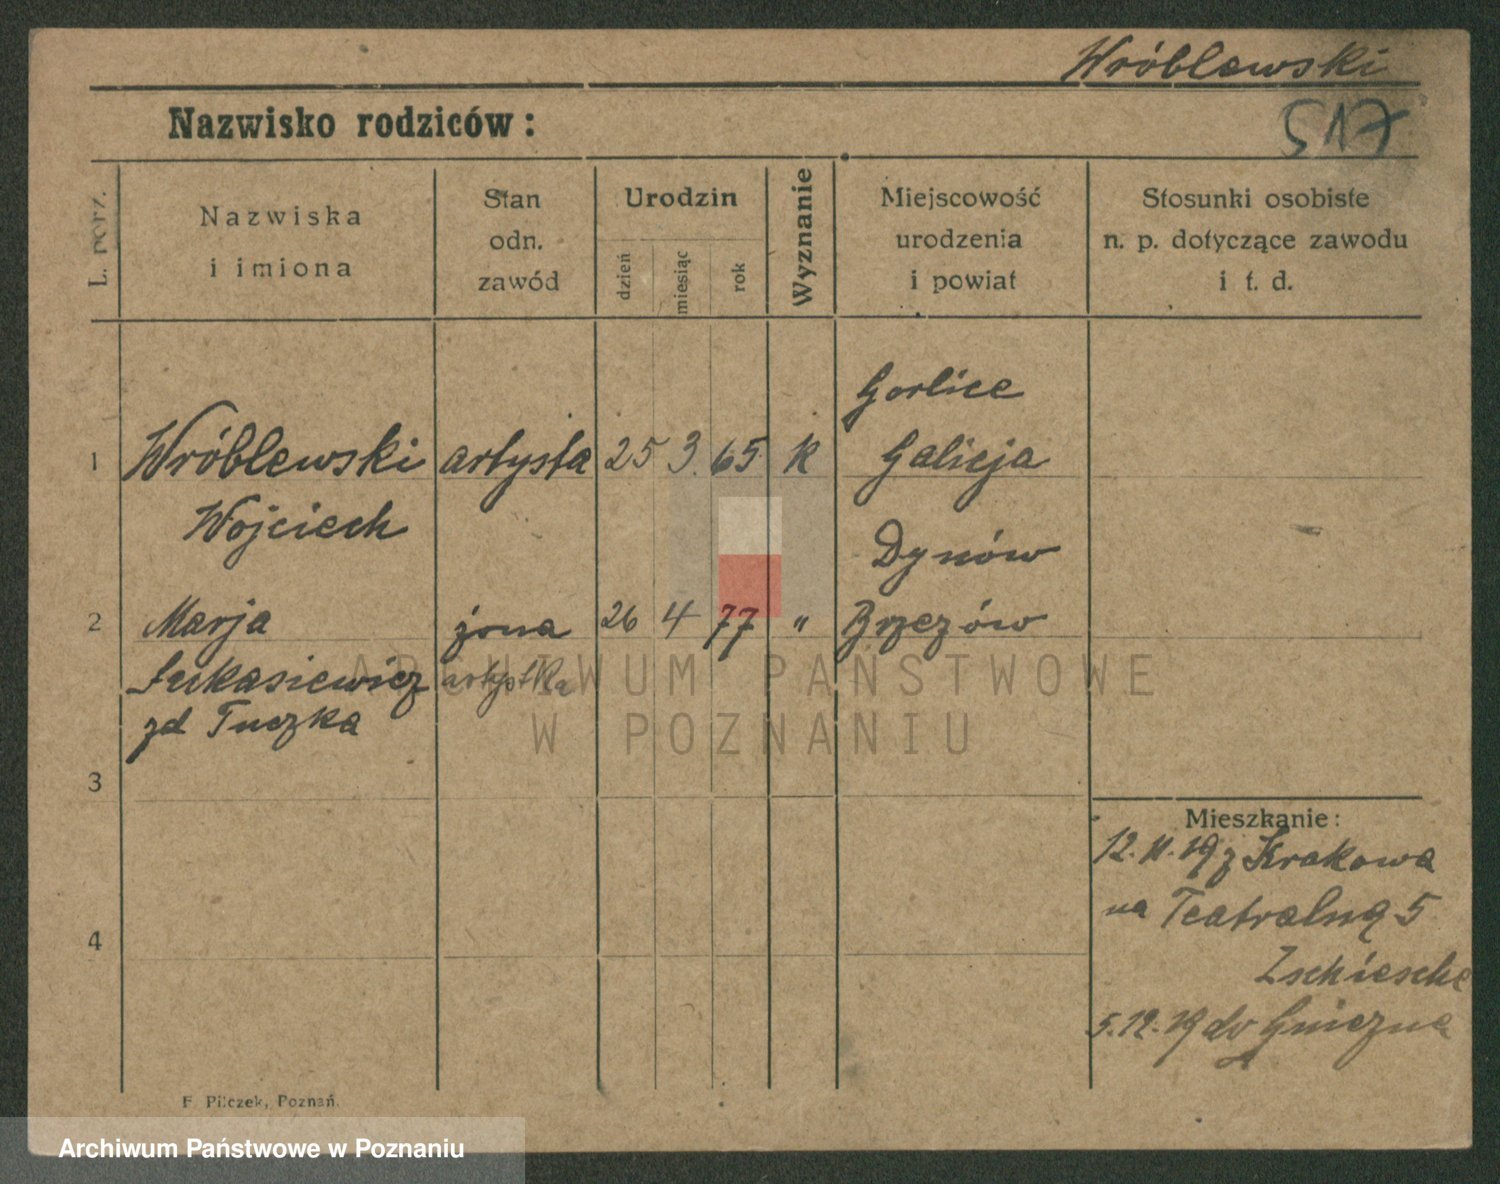 Wróblewski
517
Nazwisko rodziców:
L. porz.
Nazwiska
i imiona
Stan
odn.
zawód
Urodzin
dzień
miesiąc
rok
Wyznanie
Miejscowość
urodzenia
i powiat
Stosunki osobiste
n. p. dotyczące zawodu
i t. d.
Gorlice
1 Wróblewski artysta 25 3. 65 K Galicja
Wojciech
Dynów
2 Marja żona 26 4 77 " Brzezów
Łukasiewicz artystka
zd Tuczka
3
4
Mieszkanie:
12.11.19 z Krakowa
na Teatralną 5
Zschiesche
5.12.19 do Gniezna
F. Pilczek, Poznań.
ARCHIWUM PAŃSTWOWE
W POZNANIU
Archiwum Państwowe w Poznaniu